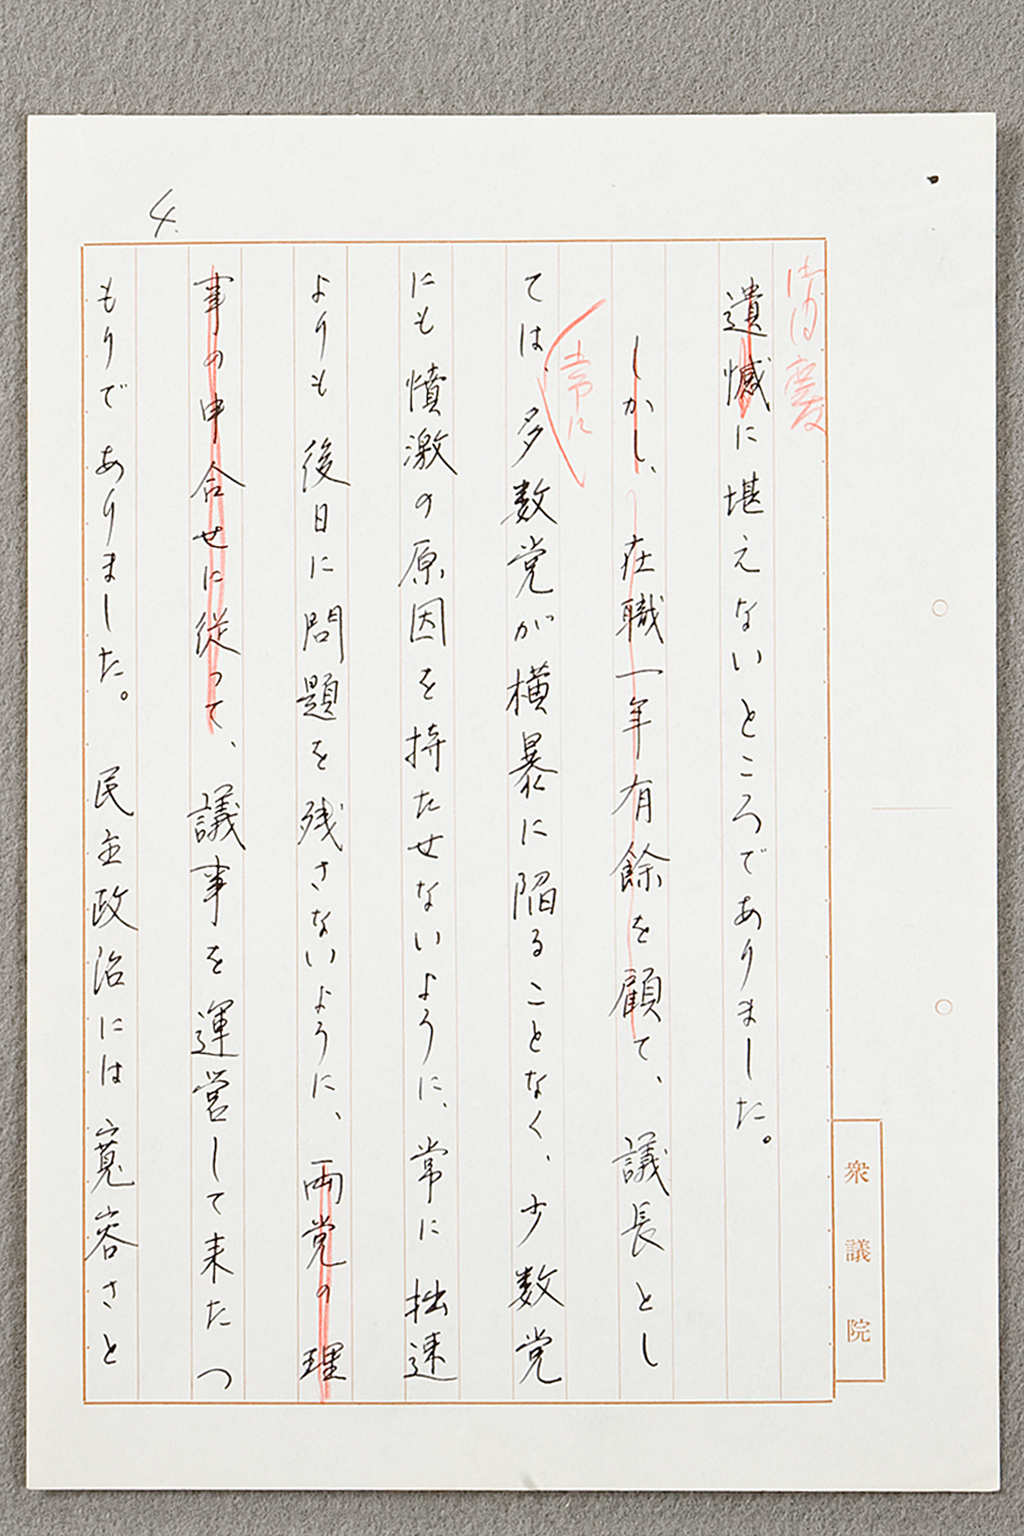 遺憾に堪えないところでありました。
しかし、在職一年有餘を顧て、議長とし
常に
ては、多数党が横暴に陥ることなく、少数党
にも憤激の原因を持たせないように、常に拙速
よりも後日に問題を残さないように、両党の理
事の申合せに従って、議事を運営して来たつ
もりでありました。民主政治には寛容さと
4.
衆議院